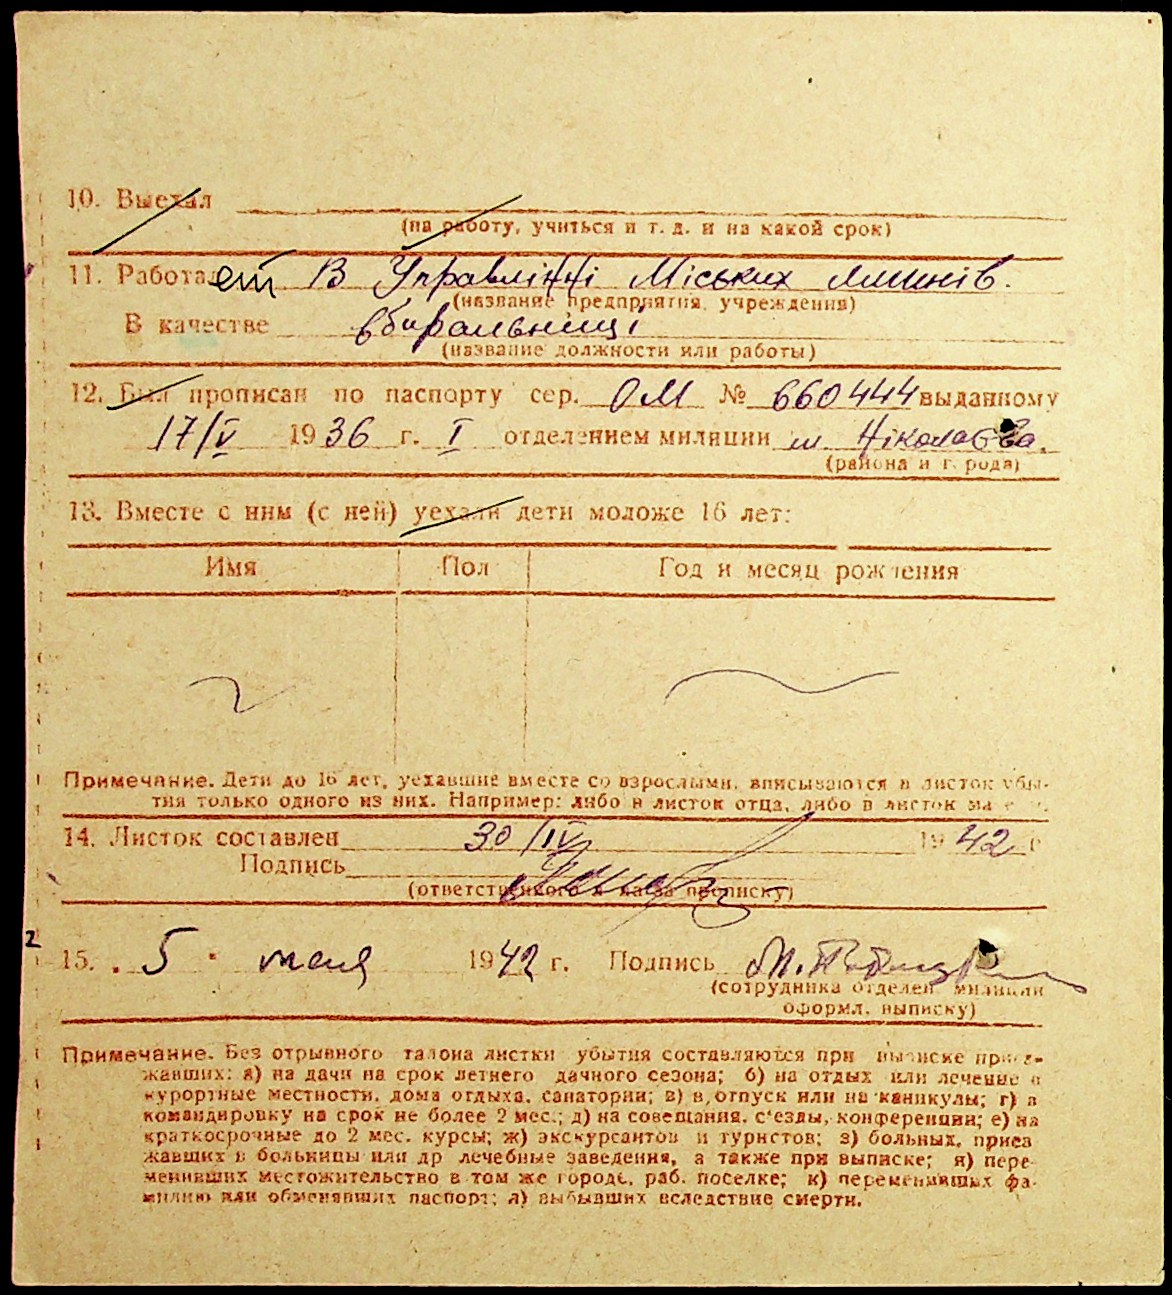 10. Выехал
(на работу, учиться и т. д. и на какой срок)
11. Работает В Управлінні Міських млинів.
(название предприятия, учреждения)
В качестве вбиральниці
(название должности или работы)
12. Был прописан по паспорту сер. ОМ № 660444 выданному
17/V 1936 г. I отделением милиции м. Ніколаєва.
(района и города)
13. Вместе с ним (с ней) уехали дети моложе 16 лет:
Имя Пол Год и месяц рождения
Примечание. Дети до 16 лет, уехавшие вместе со взрослыми, вписываются в листок убы-
тия только одного из них. Например: либо в листок отца, либо в листок
14. Листок составлен 30/IV 1942 г
Подпись
(ответственного за прописку)
2
15. 5 мая 1942 г. Подпись
(сотрудника отделен. милиции
оформл. выписку)
Примечание. Без отрывного талона листки убытия составляются при выписке приез-
жавших: а) на дачи на срок летнего дачного сезона; б) на отдых или лечение в
курортные местности, дома отдыха, санатории; в) в отпуск или на каникулы; г) в
командировку на срок не более 2 мес.; д) на совещания, с'езды, конференции; е) на
краткосрочные до 2 мес. курсы; ж) экскурсантов и туристов; з) больных, приез
жавших в больницы или др лечебные заведения, а также при выписке; и) пере-
менивших местожительство в том же городе, раб. поселке; к) переменивших фа-
милию или обменявших паспорт; л) выбывших вследствие смерти.